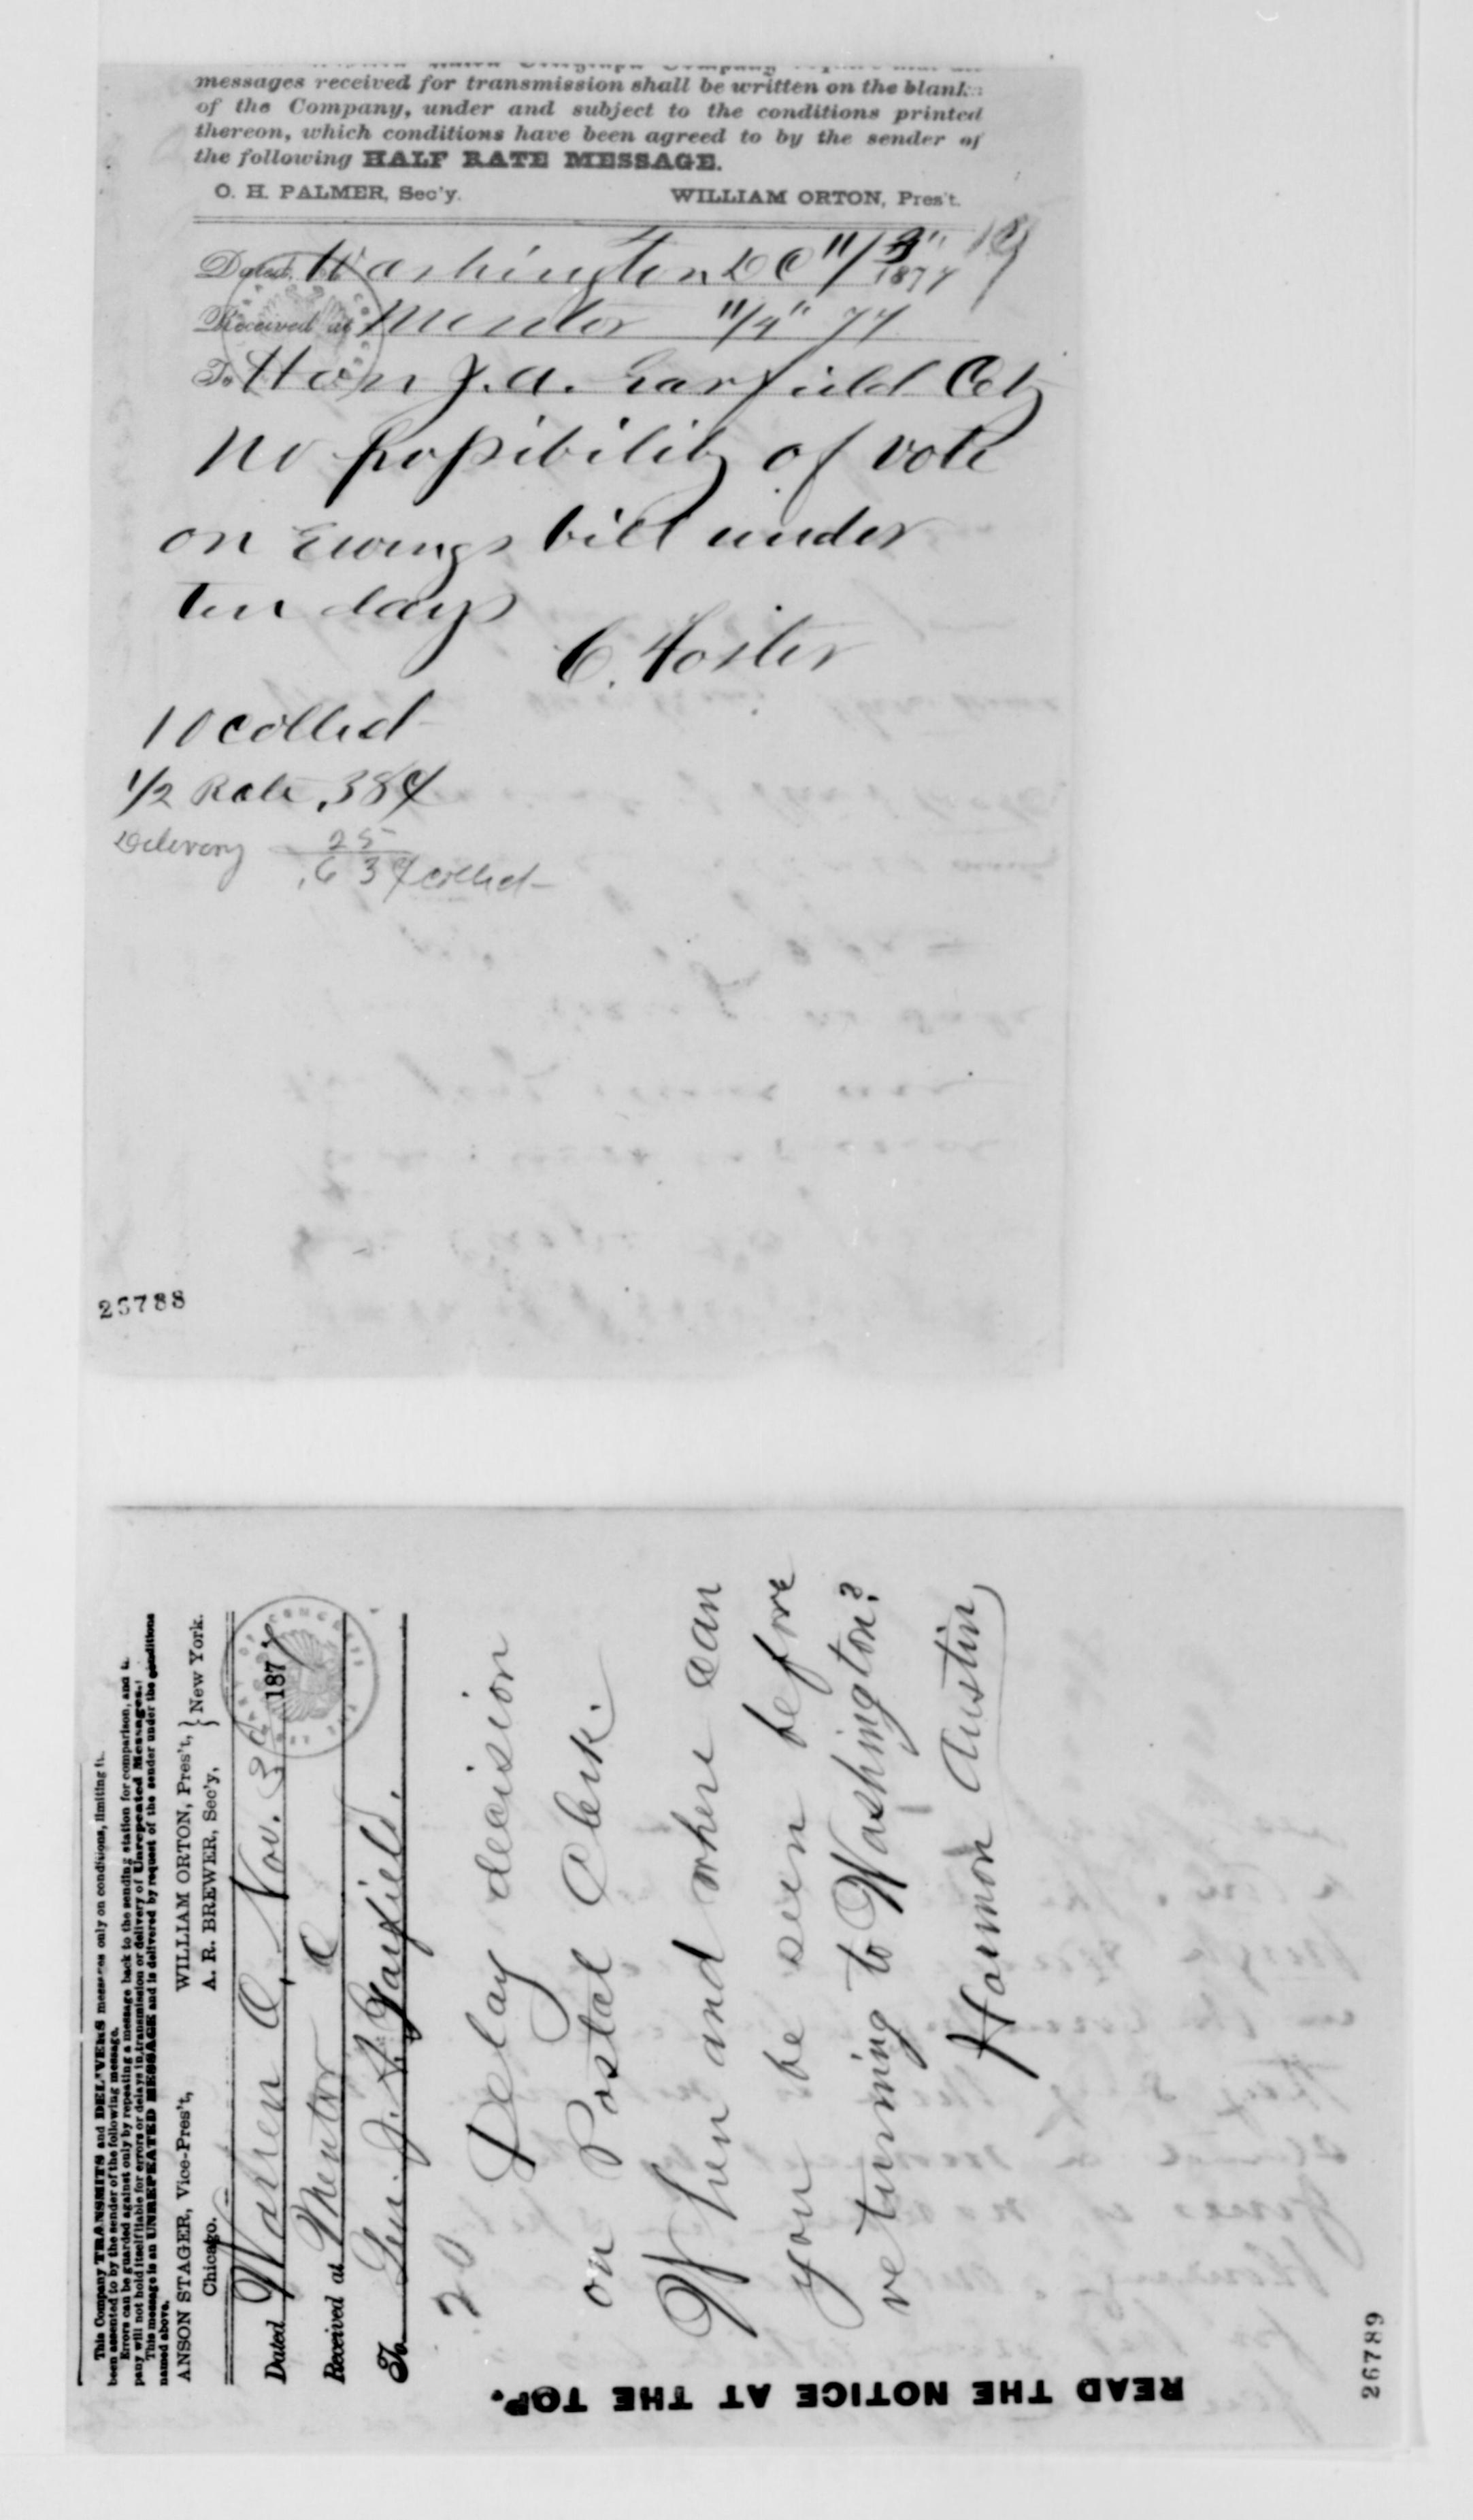 messages received for transmission shall be written on the blanks
of the Company, under and subject to the conditions printed
thereon, which conditions have been agreed to by the sender of
the following HALF RATE MESSAGE.
O. H. PALMER, Sec'y. WILLIAM ORTON, Pres't.
Dated, Washington DC 11/3" 1877
Received at Mentor 11/4" 77
To Hon J. A. Garfield
No possibility of vote
on Ewings bill under
ten days
C. Foster
10 collect
1/2 Rate .38¢
Delivery 25
.63¢ collect
26788
This Company TRANSMITS and DELIVERS messages only on conditions, limiting its
been assented to by the sender of the following message.
Errors can be guarded against only by repeating a message back to the sending station for comparison, and
pany will not hold itself liable for errors or delays in transmission or delivery of Unrepeated Messages.
This message is an UNREPEATED MESSAGE and is delivered by request of the sender under the conditions
named above.
ANSON STAGER, Vice-Pres't, WILLIAM ORTON, Pres't, } New York.
Chicago. A. R. BREWER, Sec'y, }
Dated Warren O, Nov. 3d 1877
Received at Mentor O
To Gen. J. A. Garfield.
20 Delay decision
on Postal Clerk.
When and where can
you be seen before
returning to Washington?
Harmon Austin
READ THE NOTICE AT THE TOP.
26789